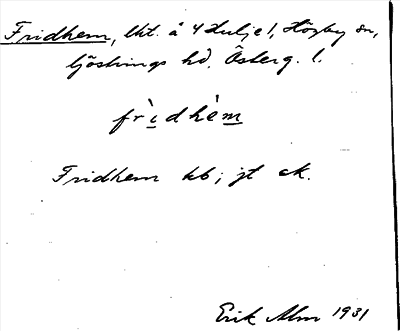 Fridhem, lht. å 4 Hulje 1, Högby sn,
Göstrings hd. Österg. l.
frìdhèm
Fridhem kb; jt ek.
Erik Alm 1931